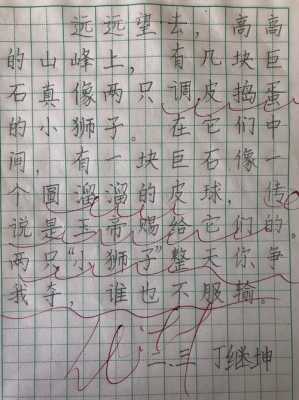 远远望去，高高
的山峰上，有几块巨
石真像两只调皮捣蛋
的小狮子。在它们中
间，有一块巨石像一
个圆溜溜的皮球，传
说是玉帝赐给它们的。
两只“小狮子”整天你争
我夺，谁也不服输。
二三 丁继坤